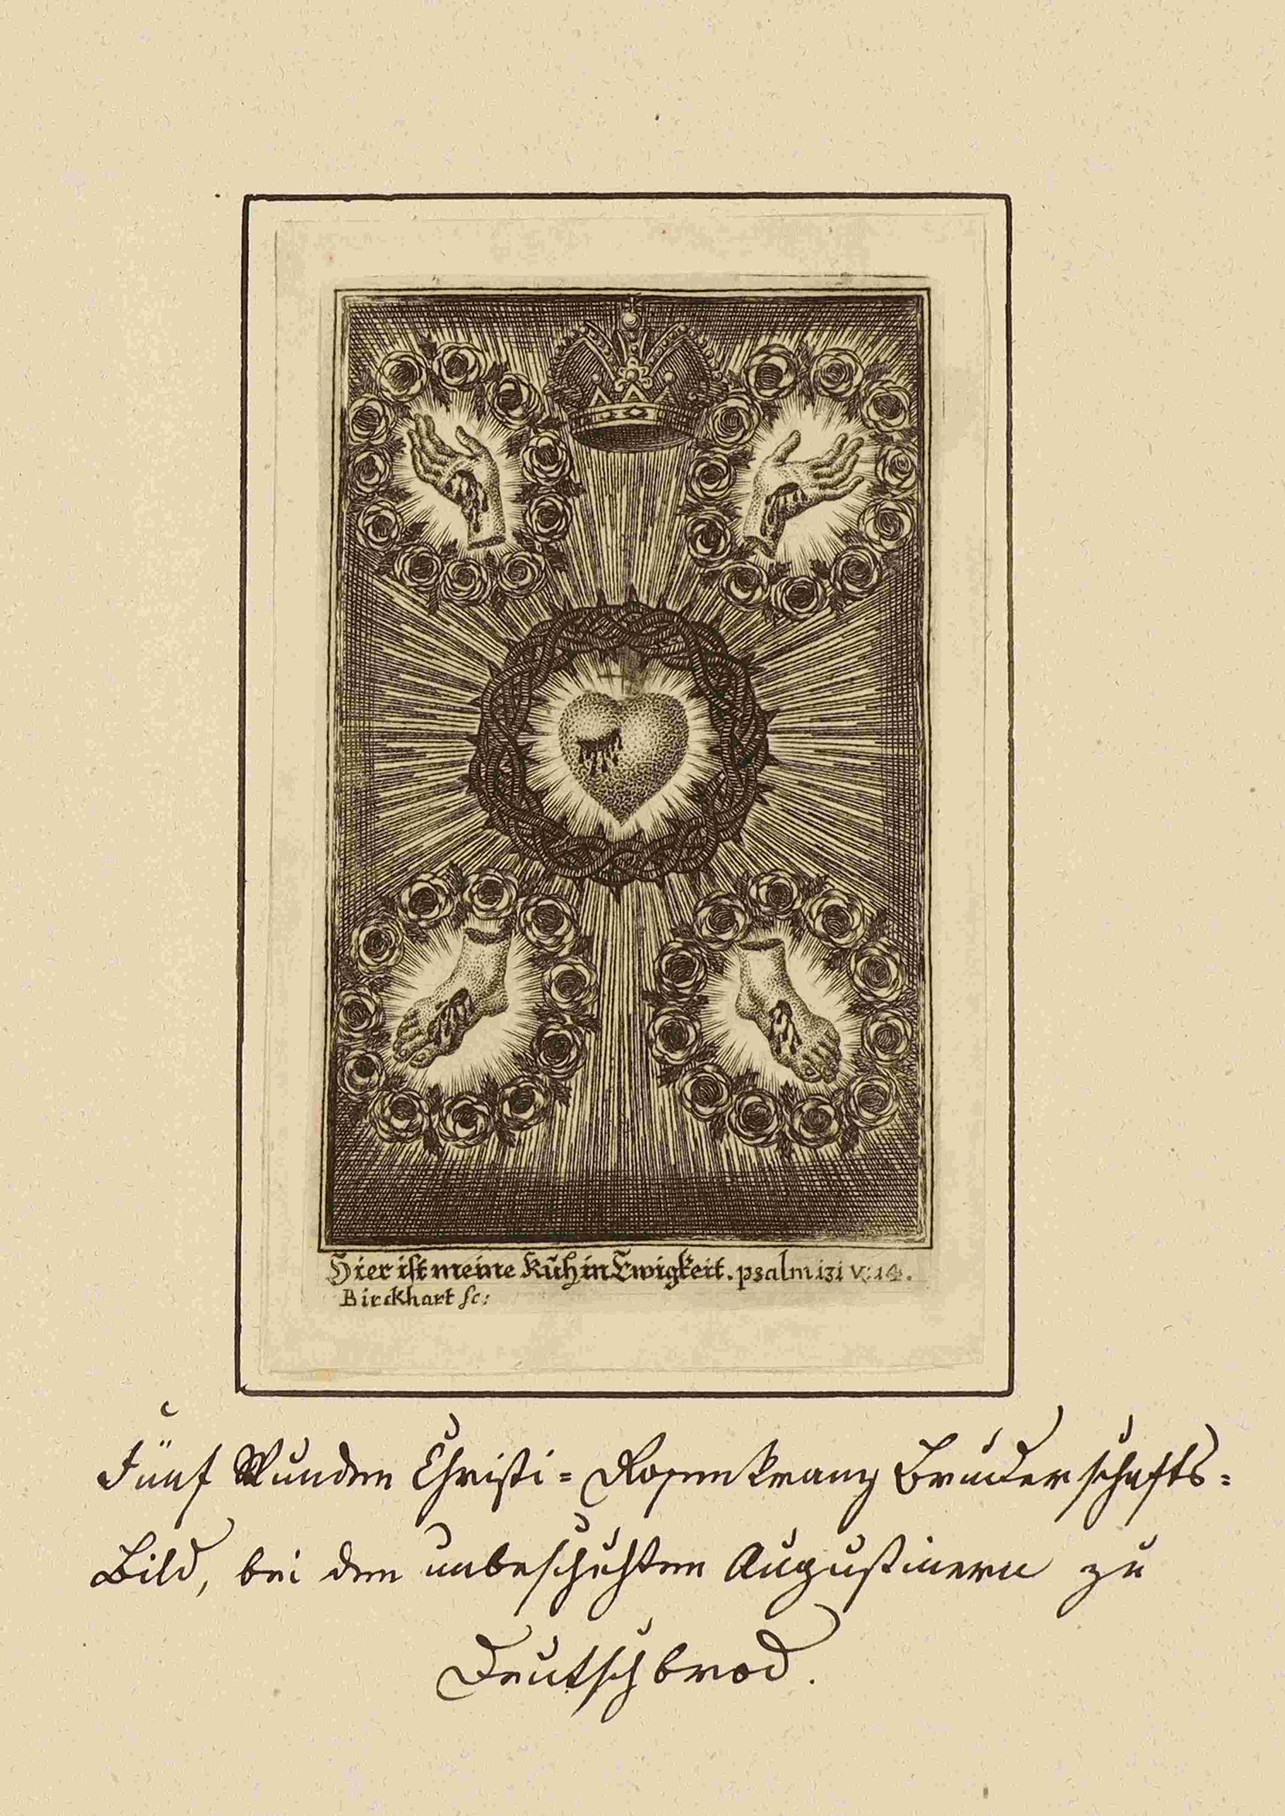 Hier ist meine Ruh in Ewigkeit. psalm 131 v: 14.
Birckhart sc:
Fünf Wunden Christi = Rosenkranz Bruderschafts=
Bild, bei den unbeschuhten Augustinern zu
Deutschbrod.